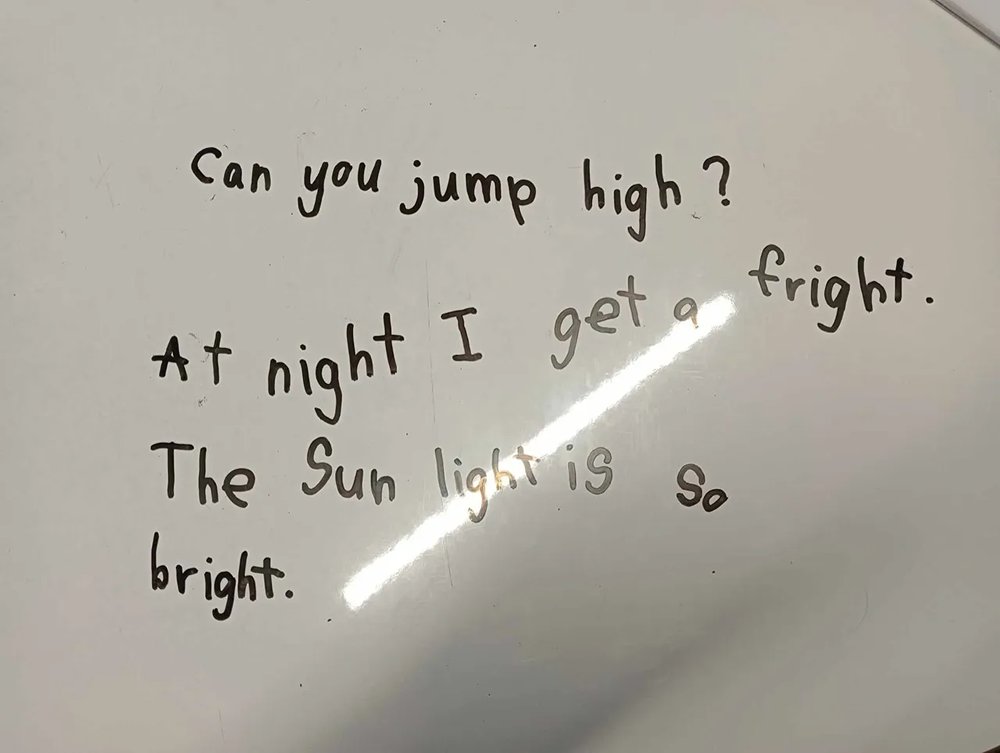 Can you jump high?
At night I get a fright.
The Sun light is so
bright.